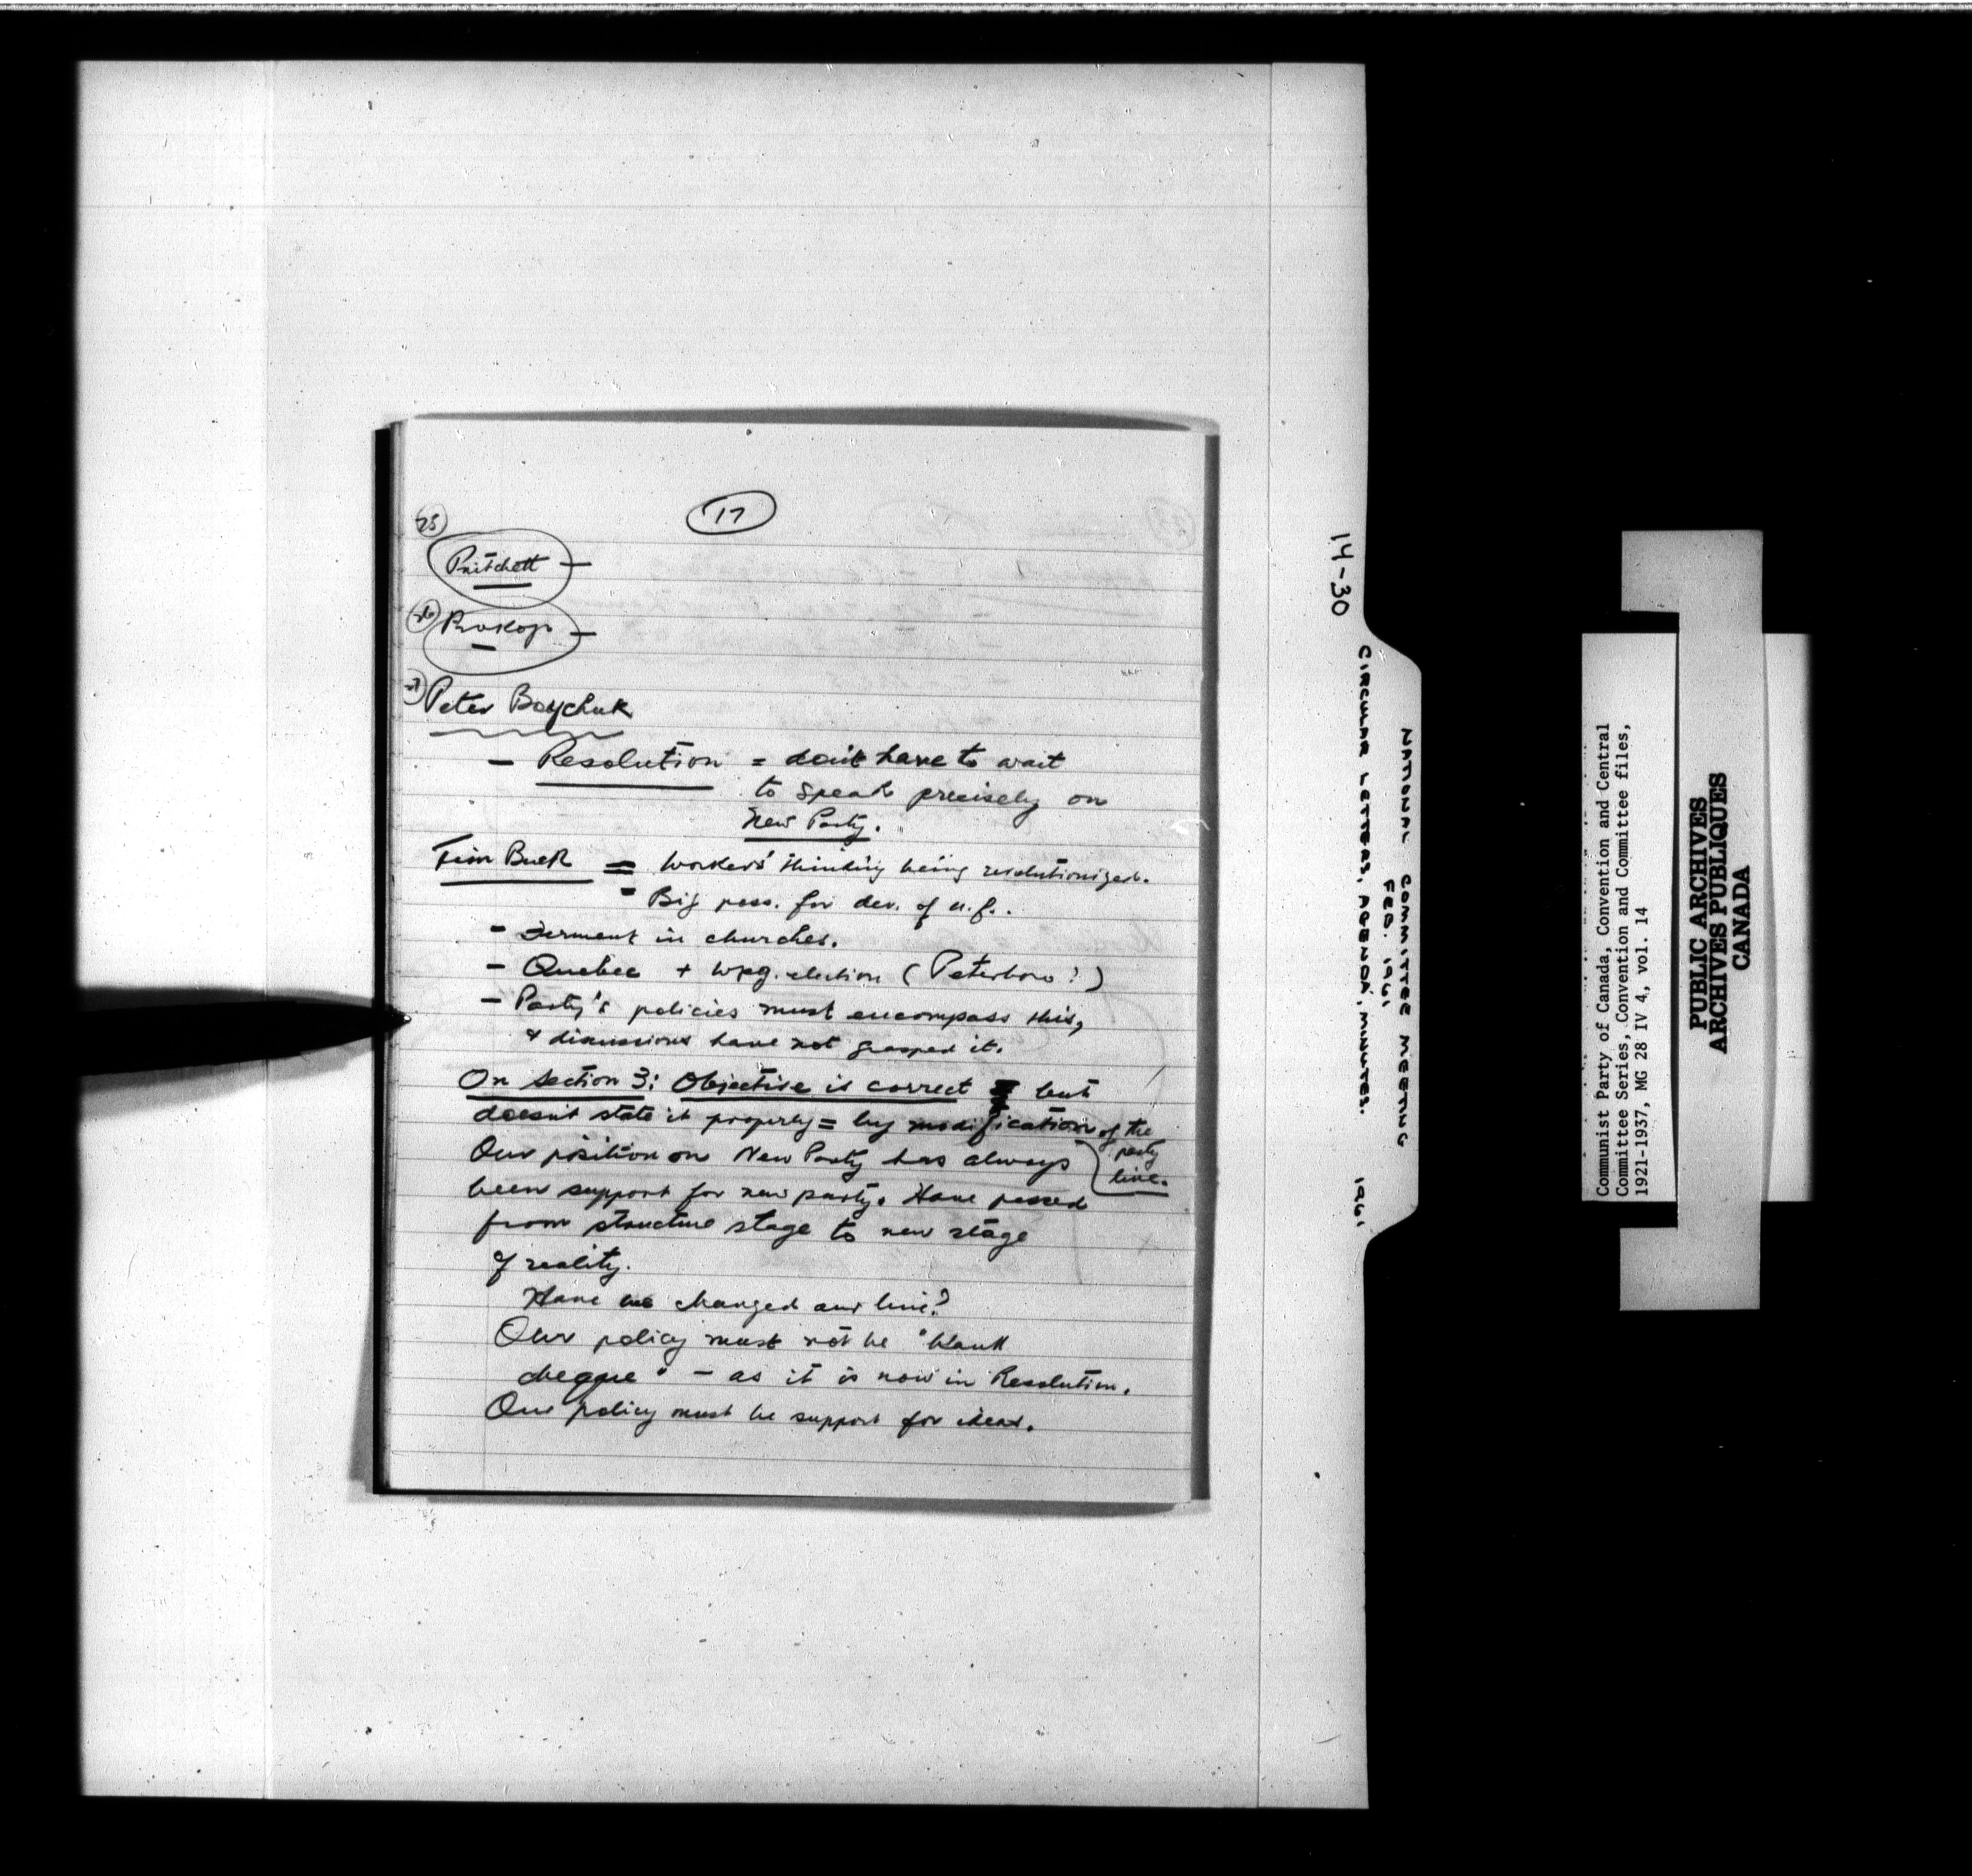 17
25
Pritchett —
26
Prokop —
27
Peter Boychuk
— Resolution = don't have to wait
to speak precisely on
New Party.
Tim Buck = Workers' thinking being revolutionized.
- Big poss. for dev. of u.f..
- Ferment in churches.
- Quebec + Wpg. election (Peterboro?)
- Party's policies must encompass this,
& discussions have not grasped it.
On Section 3: Objective is correct but
doesn't state it properly = by modification of the
party
line.
Our position on New Party has always
been support for new party. Have passed
from structure stage to new stage
of reality.
Have we changed our line?
Our policy must not be "blank
cheque" - as it is now in Resolution.
Our policy must be support for ideas.
14-30
NATIONAL COMMITTEE MEETING
FEB. 1961,
CIRCULAR LETTERS, AGENDA, MINUTES. 1961,
Communist Party of Canada, Convention and Central
Committee Series, Convention and Committee files,
1921-1937, MG 28 IV 4, vol. 14
PUBLIC ARCHIVES
ARCHIVES PUBLIQUES
CANADA